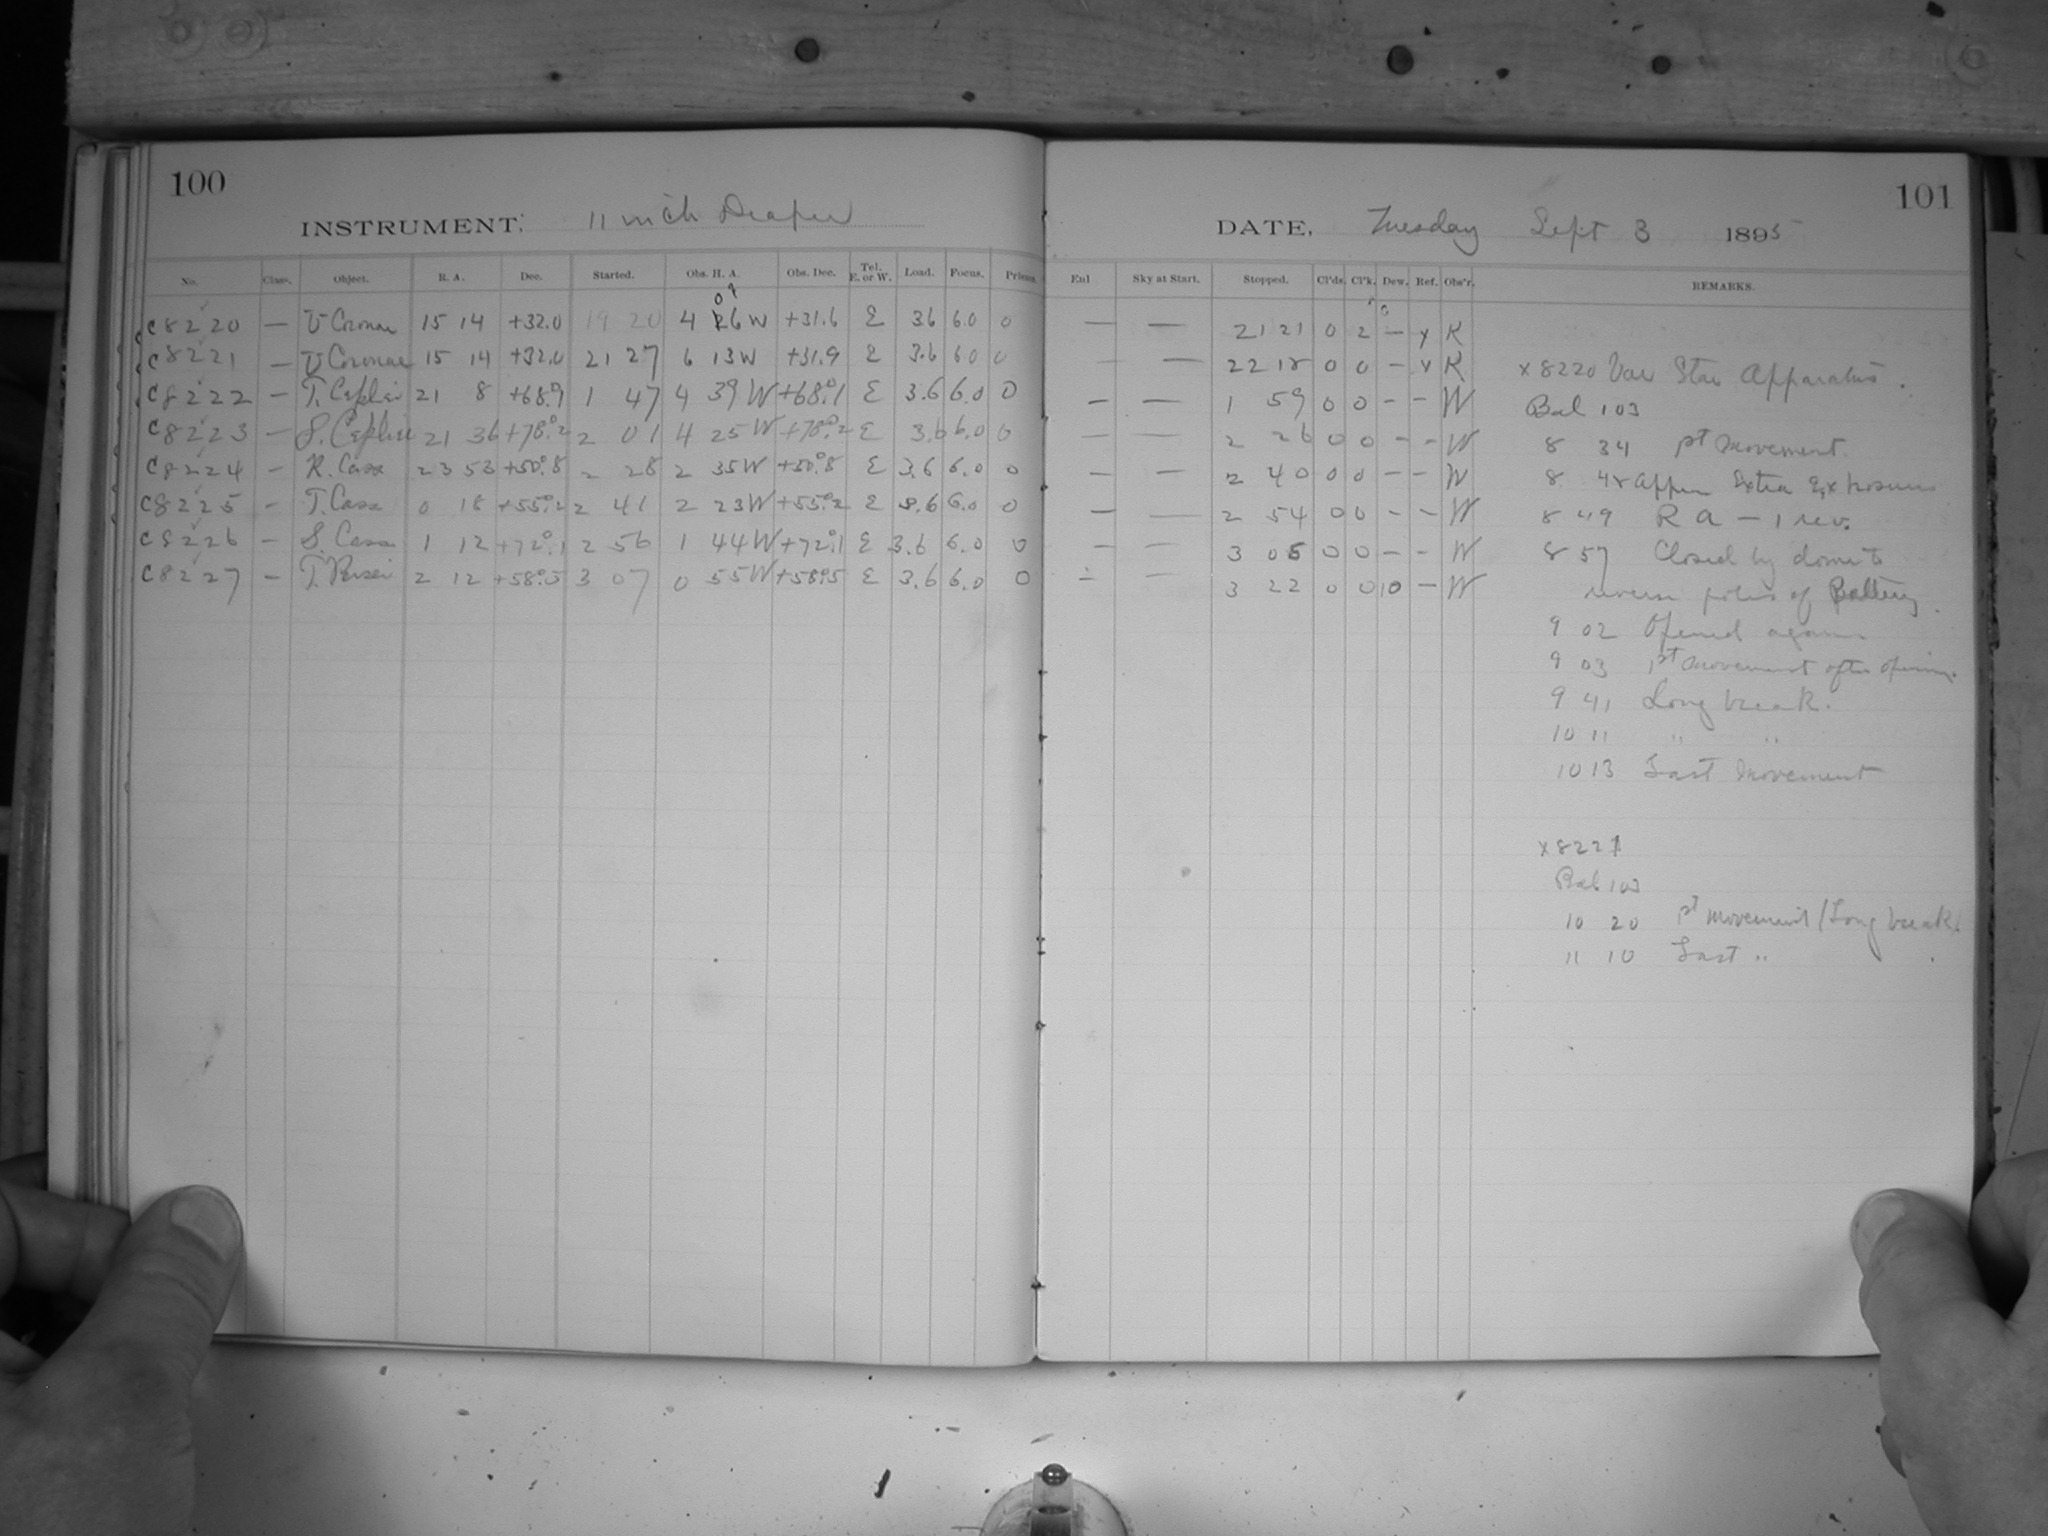 100
INSTRUMENT, 11 inch Draper
No. Class. Object. R. A. Dec. Started. Obs. H. A. Obs. Dec. Tel. E. or W. Load. Focus. Prisms.
C8220 — U Coronae 15 14 +32.0 19 20 4 26 W +31.6 E 3.6 6.0 0
C8221 — U Coronae 15 14 +32.0 21 27 6 13 W +31.9 E 3.6 6.0 0
C8222 — T. Cephei 21 8 +68°.1 1 47 4 39 W +68°.1 E 3.6 6.0 0
C8223 — S. Cephei 21 36 +78°.2 2 01 4 25 W +78°.2 E 3.6 6.0 0
C8224 — R. Cass 23 53 +50°.8 2 28 2 35 W +50°.8 E 3.6 6.0 0
C8225 — T. Cass 0 18 +55°.2 2 41 2 23 W +55°.2 E 3.6 6.0 0
C8226 — S. Cass 1 12 +72°.1 2 56 1 44 W +72°.1 E 3.6 6.0 0
C8227 — T. Persei 2 12 +58°.5 3 07 0 55 W +58°.5 E 3.6 6.0 0
101
DATE, Tuesday Sept 3 1895
Sky at Start. Stopped. Cl'ds. Cl'k. Dew. Ref. Obs'r. REMARKS.
— — 21 21 0 2 — x K
— — 22 18 0 0 — x K
— — 1 59 0 0 — — W
— — 2 26 0 0 — — W
— — 2 40 0 0 — — W
— — 2 54 0 0 — — W
— — 3 05 0 0 — — W
— — 3 22 0 0 10 — W
x 8220 Var Star Apparatus.
Bal 103
8 34 1st Movement.
8 48 Extra Exposure
8 49 R A — 1 rev.
8 57 Closed by dome to
reverse poles of Battery.
9 02 Opened again
9 03 1st movement after opening.
9 41 Long break.
10 11 " "
10 13 Last Movement
x 8221
Bal 103
10 20 1st movement (Long break)
11 10 Last "